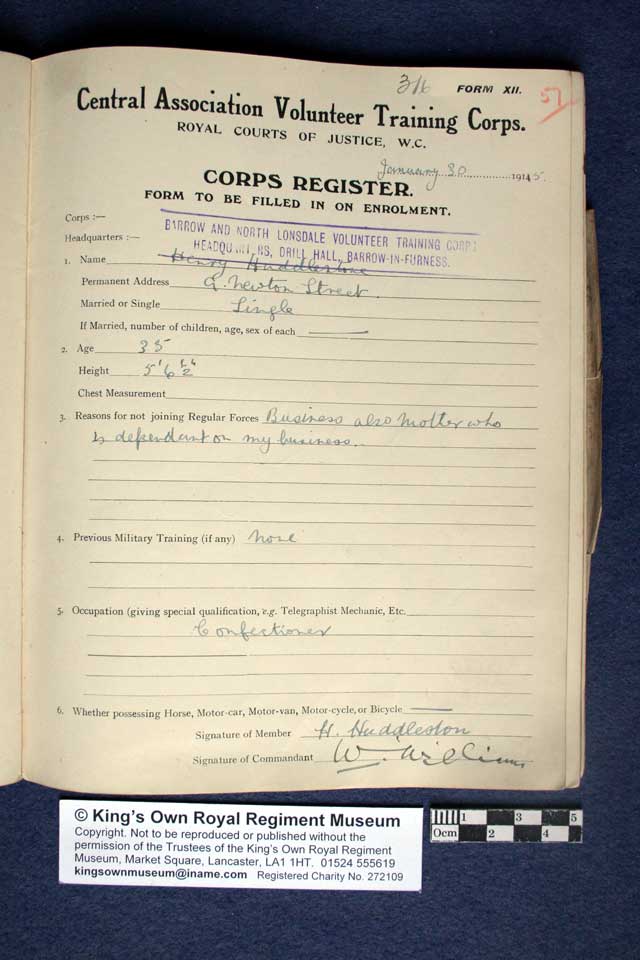 316 FORM XII. 57
Central Association Volunteer Training Corps.
ROYAL COURTS OF JUSTICE, W.C.
January 30 1915.
CORPS REGISTER.
FORM TO BE FILLED IN ON ENROLMENT.
Corps :—
BARROW AND NORTH LONSDALE VOLUNTEER TRAINING CORPS
Headquarters :—
HEADQUARTERS, DRILL HALL, BARROW-IN-FURNESS.
1. Name Henry Huddlestone
Permanent Address Newton Street.
Married or Single Single
If Married, number of children, age, sex of each —
2. Age 35
Height 5' 6 ½"
Chest Measurement
3. Reasons for not joining Regular Forces Business also Mother who
is dependant on my business.
4. Previous Military Training (if any) None
5. Occupation (giving special qualification, e.g. Telegraphist Mechanic, Etc.
Confectioner
6. Whether possessing Horse, Motor-car, Motor-van, Motor-cycle, or Bicycle —
Signature of Member H. Huddleston
Signature of Commandant W. Williams
© King's Own Royal Regiment Museum
Copyright. Not to be reproduced or published without the
permission of the Trustees of the King's Own Royal Regiment
Museum, Market Square, Lancaster, LA1 1HT. 01524 555619
kingsownmuseum@iname.com Registered Charity No. 272109
1 3 5
0cm 2 4